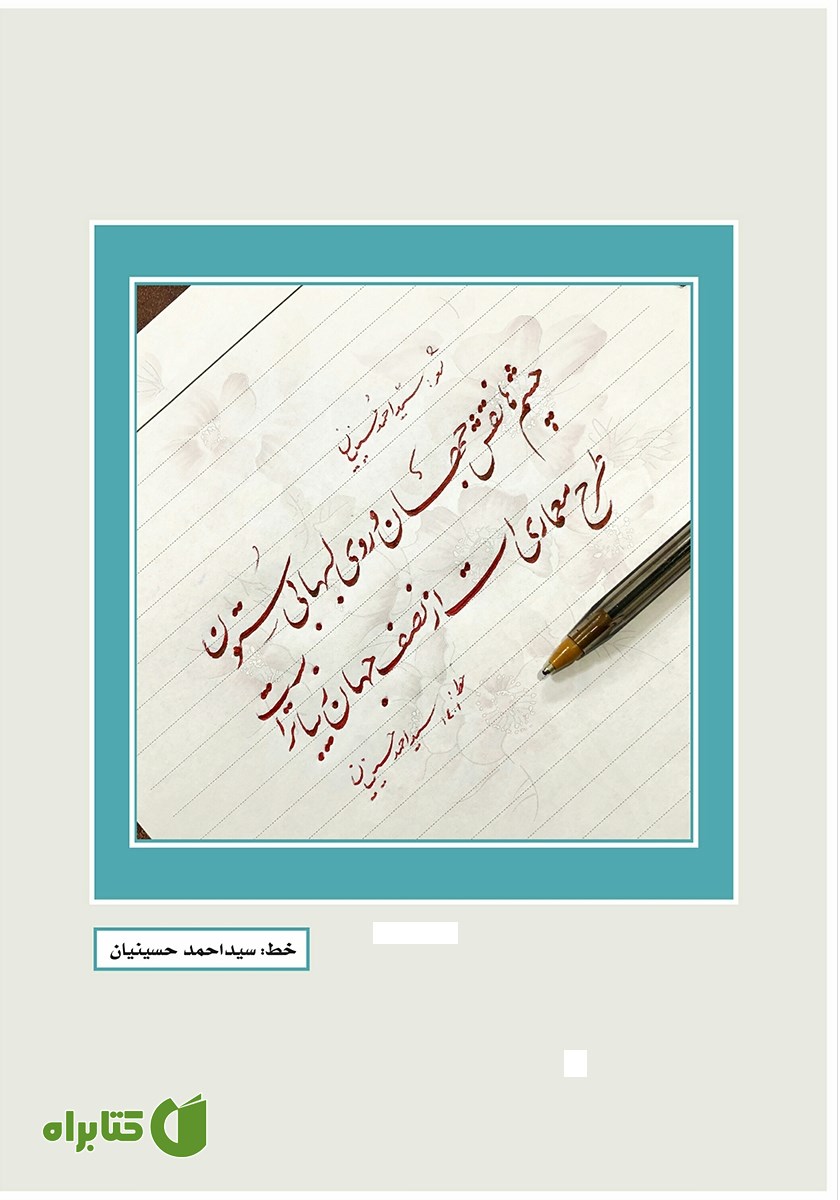 شعر: سیداحمد حسینیان
چشم ها نقش جهان و روی لبهایی ستون
طرح معماری است از نصف جهان زیباتر است
خط: سیداحمد حسینیان
۱۴۰۱
خط: سیداحمد حسینیان
کتابراه